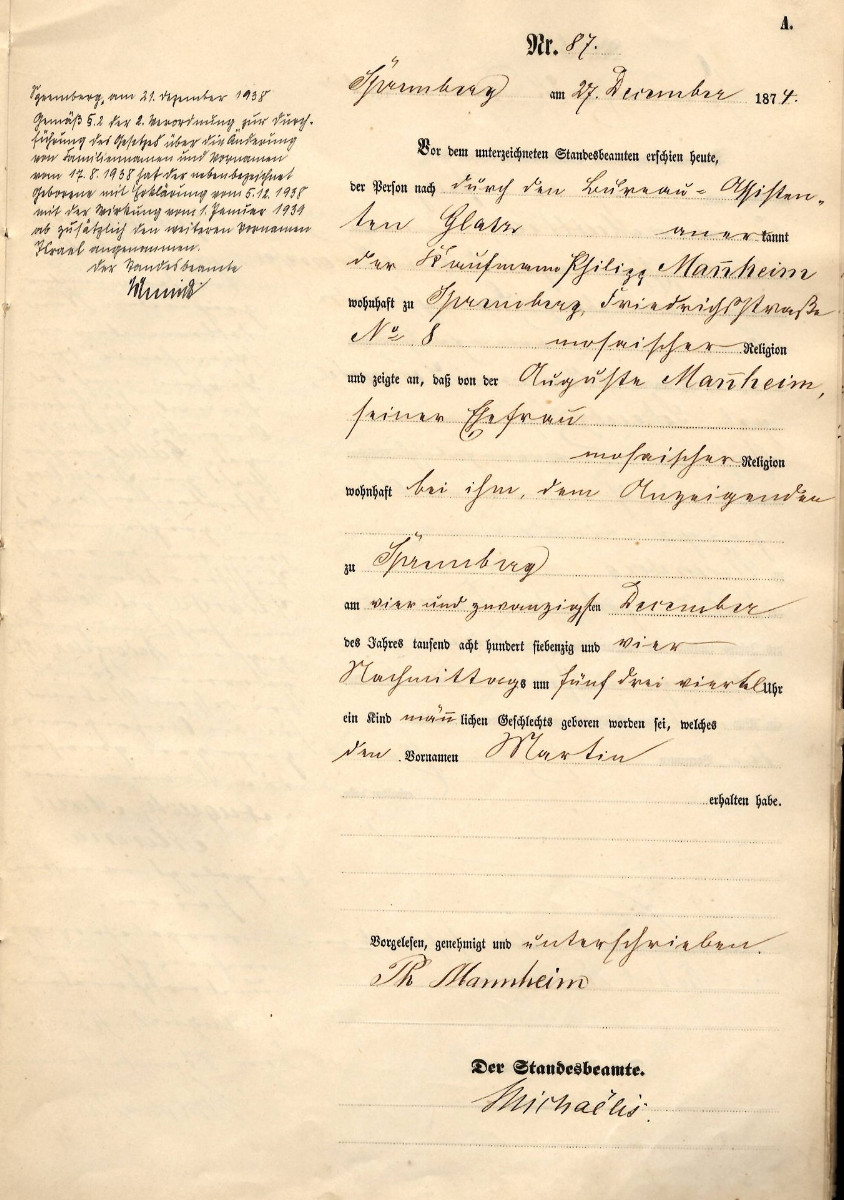 A.
Nr. 87.
Spremberg am 27. December 1874.
Vor dem unterzeichneten Standesbeamten erschien heute,
der Person nach durch den Bureau-Assisten-
ten Glatz anerkannt
der Kaufmann Philipp Man̄heim
wohnhaft zu Spremberg, Friedrichsstraße
No 8 mosaischer Religion
und zeigte an, daß von der Auguste Man̄heim,
seiner Ehefrau
mosaischer Religion
wohnhaft bei ihm, dem Anzeigenden
zu Spremberg
am vier und zwanzigsten December
des Jahres tausend acht hundert siebenzig und vier
Nachmittags um fünf drei viertel Uhr
ein Kind män̄lichen Geschlechts geboren worden sei, welches
den Vornamen Martin
erhalten habe.
Vorgelesen, genehmigt und unterschrieben.
Ph Mannheim
Der Standesbeamte.
Michaëlis.
Spremberg, am 21. Dezember 1938
Gemäß §. 2 der 2. Verordnung zur Durch-
führung des Gesetzes über die Änderung
von Familiennamen und Vornamen
vom 17.8.1938 hat der nebenbezeichnet
Geborene mit Erklärung vom 5.12.1938
mit der Wirkung vom 1. Januar 1939
ab zusätzlich den weiteren Vornamen
Israel angenommen.
Der Standesbeamte